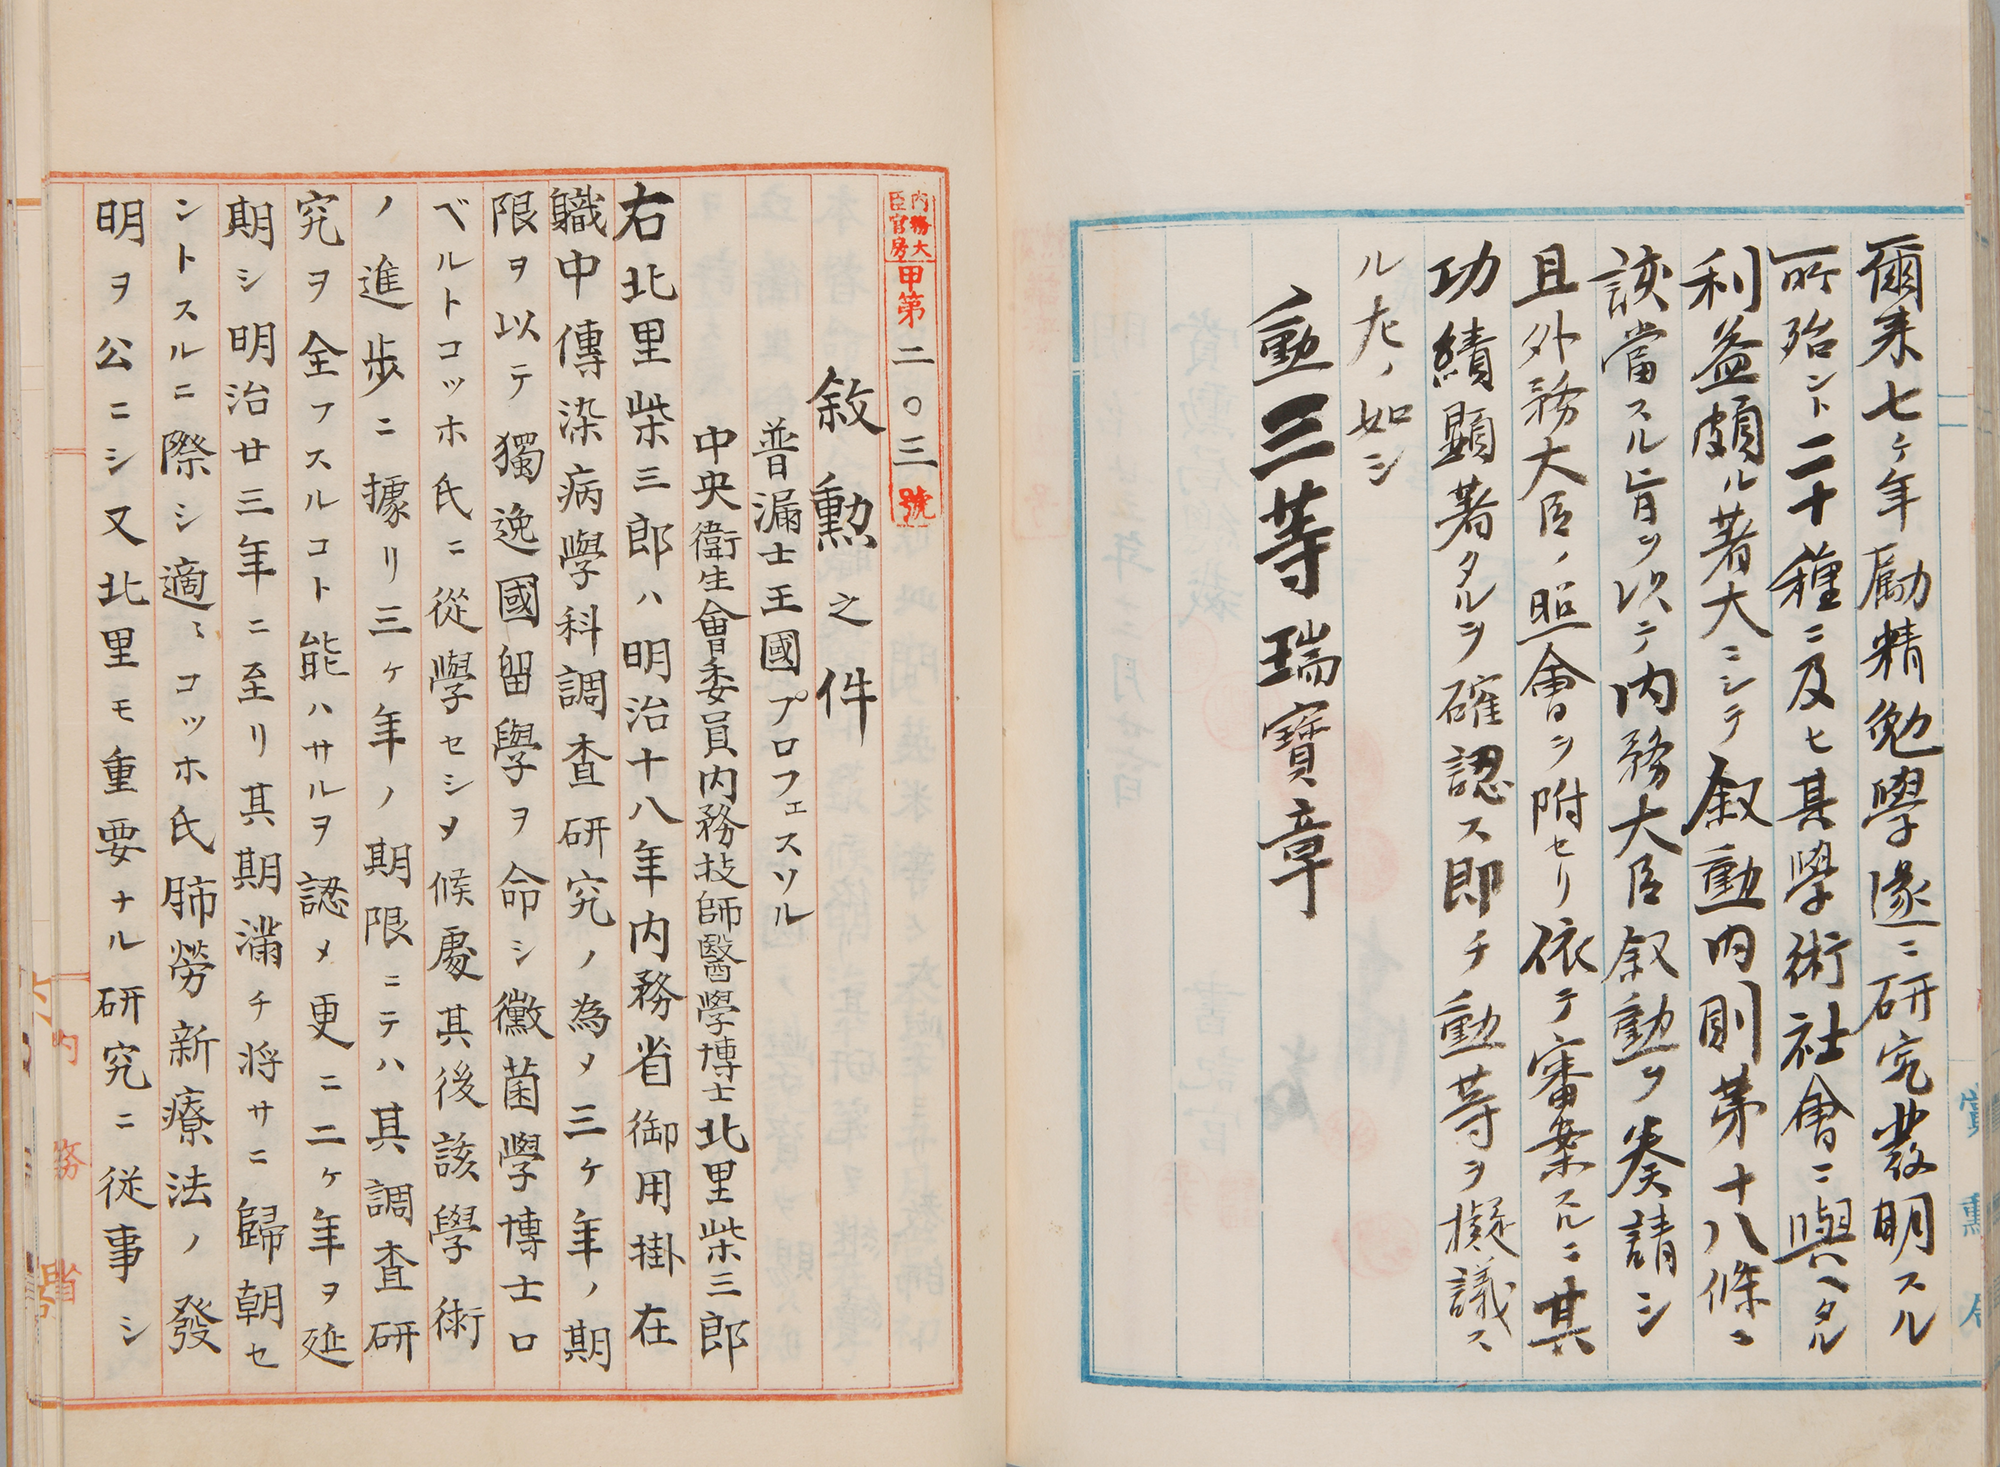 爾来七ヶ年勵精勉學遂ニ研究發明スル
所殆ント二十種ニ及ヒ其學術社會ニ與ヘタル
利益頗ル著大ニシテ叙勳内則第十八條ニ
該當スル旨ヲ以テ内務大臣叙勳ヲ奏請シ
且外務大臣ノ照會ヲ附セリ依テ審案スルニ其
功績顯著タルヲ確認ス即チ勳等ヲ擬議ス
ル左ノ如シ
勳三等瑞寶章
賞勲局
内務大臣官房甲第二〇三號
敘勲之件
普漏士王國プロフェスソル
中央衛生會委員内務技師醫學博士北里柴三郎
右北里柴三郎ハ明治十八年内務省御用掛在
職中傳染病學科調査研究ノ為メ三ヶ年ノ期
限ヲ以テ獨逸國留學ヲ命シ黴菌學博士ロ
ベルトコッホ氏ニ從學セシメ候處其後該學術
ノ進歩ニ據リ三ヶ年ノ期限ニテハ其調査研
究ヲ全フスルコト能ハサルヲ認メ更ニ二ヶ年ヲ延
期シ明治廿三年ニ至リ其期滿チ将サニ歸朝セ
ントスルニ際シ適〻コッホ氏肺勞新療法ノ發
明ヲ公ニシ又北里モ重要ナル研究ニ従事シ
内務省